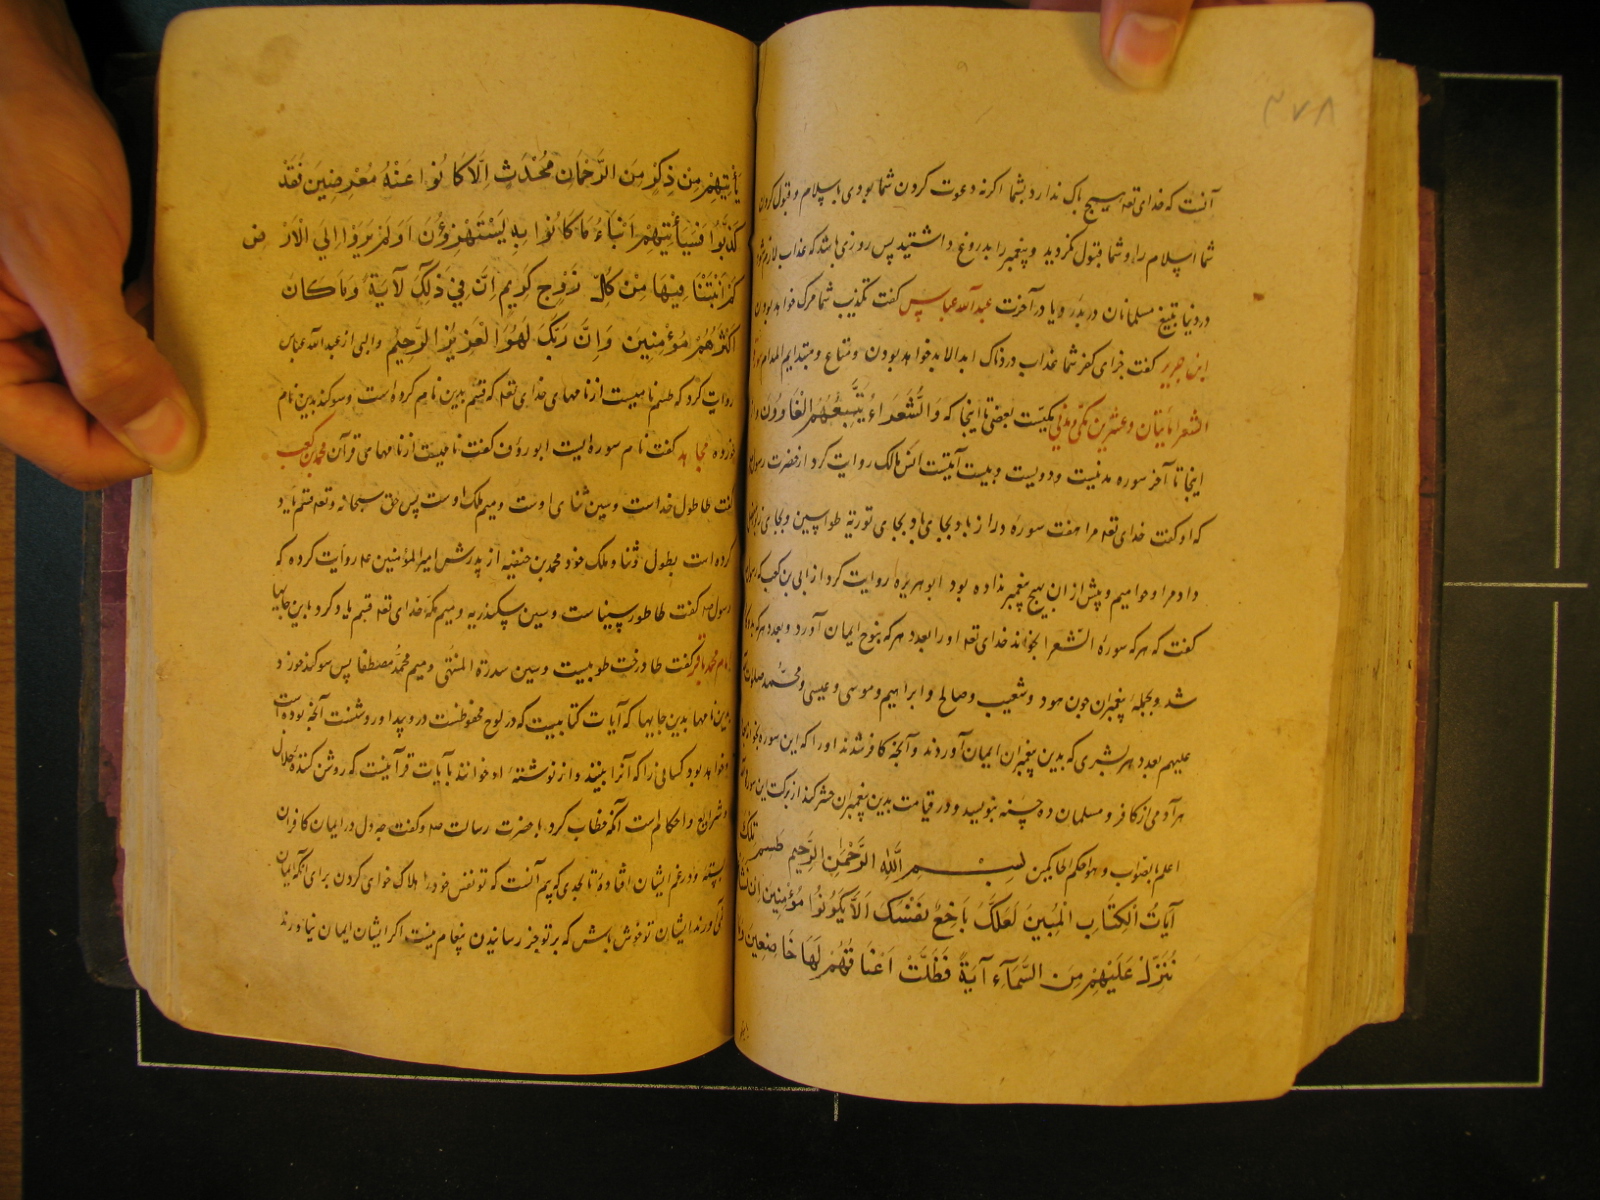 ۴۷۸
آنست که خدای تعه هیچ باک ندارد بشما اکر نه دعوت کردن شما بودی باسلام و قبول کردن
شما اسلام را و شما قبول نکردید و پیغمبر را بدروغ داشتید پس روزی باشد که عذاب لازم شود
در دنیا بتیغ مسلمانان در بدر و یا در آخرت عبدالله عباس کفت تکذیب شما مرک خواهد بودن
ابن جریر کفت جزای کفر شما عذاب دردناک ابد الابد خواهد بودن
الشعراء مکیست بعضی تا اینجا که وَالشُّعَرَاءُ يَتَّبِعُهُمُ الْغَاوُونَ و از
اینجا تا آخر سوره مدنیست و دویست و بیست آیتست انس مالک روایت کرد از حضرت رسول
که او کفت خدای تعه مرا هفت سوره دراز بداد بجای توریة و طواسین بجای
داد مرا و حوامیم و پیش از این هیچ پیغمبر نداده بود ابو هریره روایت کرد از ابی بن کعب که
کفت که هر که سورۀ الشعرا بخواند خدای تعه او را بعدد هر که بنوح ایمان آورد و بعدد هر که
شد و بجمله پیغمبران چون هود و شعیب و صالح و ابراهیم و موسی و عیسی و محمد صلوات
علیهم بعدد هر بشری که بدین پیغمبران ایمان آوردند و آنچه کافر شدند او را که این سوره
هر آدمی از کافر و مسلمان ده حسنه بنویسید و در قیامت بدین پیغمبران حشر کند از برکت این سوره
اعلم بالصواب و هو احکم الحاکمین بسم الله الرَّحْمَنِ الرَّحِيمِ طسم تلك
آيَاتُ الْكِتَابِ الْمُبِينَ لَعَلَّكَ بَاخِعٌ نَفْسَكَ أَلَّا يَكُونُوا مُؤْمِنِينَ إِن نَشَأْ
نُنَزِّلْ عَلَيْهِمْ مِنَ السَّمَآءِ آيَةً فَظَلَّتْ أَعْنَاقُهُمْ لَهَا خَاضِعِينَ وَمَا
يَأْتِيهِمْ مِنْ ذِكْرٍ مِنَ الرَّحْمَانِ مُحْدَثٍ إِلَّا كَانُوا عَنْهُ مُعْرِضِينَ فَقَدْ
كَذَّبُوا فَسَيَأْتِيهِمْ أَنْبَاءُ مَا كَانُوا بِهِ يَسْتَهْزِؤُنَ أَوَلَمْ يَرَوْا إِلَى الْأَرْض
كَمْ أَنْبَتْنَا فِيهَا مِنْ كُلِّ زَوْجٍ كَرِيمٍ إِنَّ فِي ذَلِكَ لَآيَةً وَمَا كَانَ
أَكْثَرُهُمْ مُؤْمِنِينَ وَإِنَّ رَبَّكَ لَهُوَ الْعَزِيزُ الرَّحِيمُ والبی از عبدالله عباس
روایت کرد که طسم نامیست از نامهای خدای تعه که قسم بدین نام کرده است و سوکند بدین نام
خورده مجاهد کفت نام سوره ایست ابو روق کفت نامیست از نامهای قرآن محمد بن کعب
کفت طا طول خداست و سین ثنای اوست و میم ملک اوست پس حق سبحانه و تعه قسم یاد
کرده است بطول و ثنا و ملک خود محمد بن حنفیه از پدرش امیرالمؤمنین ع روایت کرده که
رسول ص کفت طا طور سیناست و سین سکندریه و میم مکه خدای تعه قسم یاد کرد باین جایها
امام محمد باقر کفت طا درخت طوبیست و سین سدرة المنتهی و میم محمد مصطفا پس سوکند خورد
بدین نامها بدین جایها که آیات کتابیست که در لوح محفوظست در و پیدا و روشنست آنچه بوده است
و خواهد بود کسانی را که آنرا بینند و از نوشته او خوانند یا آیات قرآنیست که روشن کننده حلال
و شرایع و احکام است آنکه خطاب کرد با حضرت رسالت ص و کفت چه دل در ایمان کافران
بسته و در غم ایشان افتاده تا بحدی که بیم آنست که تو نفس خود را هلاک خواهی کردن برای آنکه ایمان
نمی آورند ایشان تو خوش باش که بر تو جز رسانیدن پیغام نیست اکر ایشان ایمان نیاورند